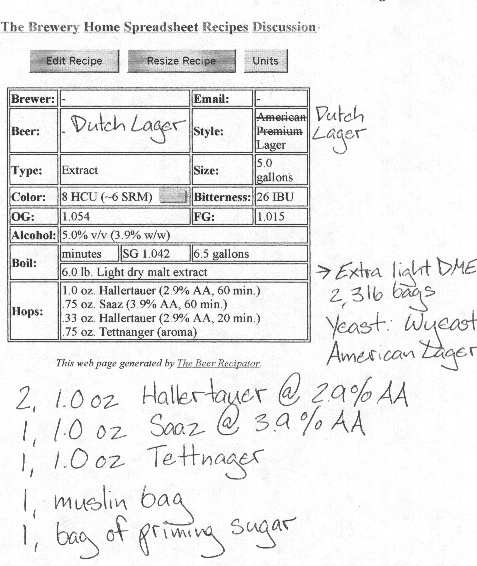 The Brewery Home Spreadsheet Recipes Discussion
Edit Recipe Resize Recipe Units
Brewer: - Email: -
Beer: - Dutch Lager Style: American Premium Lager Dutch Lager
Type: Extract Size: 5.0 gallons
Color: 8 HCU (~6 SRM) Bitterness: 26 IBU
OG: 1.054 FG: 1.015
Alcohol: 5.0% v/v (3.9% w/w)
Boil: minutes SG 1.042 6.5 gallons
6.0 lb. Light dry malt extract
Hops: 1.0 oz. Hallertauer (2.9% AA, 60 min.)
.75 oz. Saaz (3.9% AA, 60 min.)
.33 oz. Hallertauer (2.9% AA, 20 min.)
.75 oz. Tettnanger (aroma)
→ Extra light DME
2, 3lb bags
Yeast: Wyeast
American Lager
This web page generated by The Beer Recipator.
2, 1.0 oz Hallertauer @ 2.9% AA
1, 1.0 oz Saaz @ 3.9% AA
1, 1.0 oz Tettnager
1, muslin bag
1, bag of priming sugar